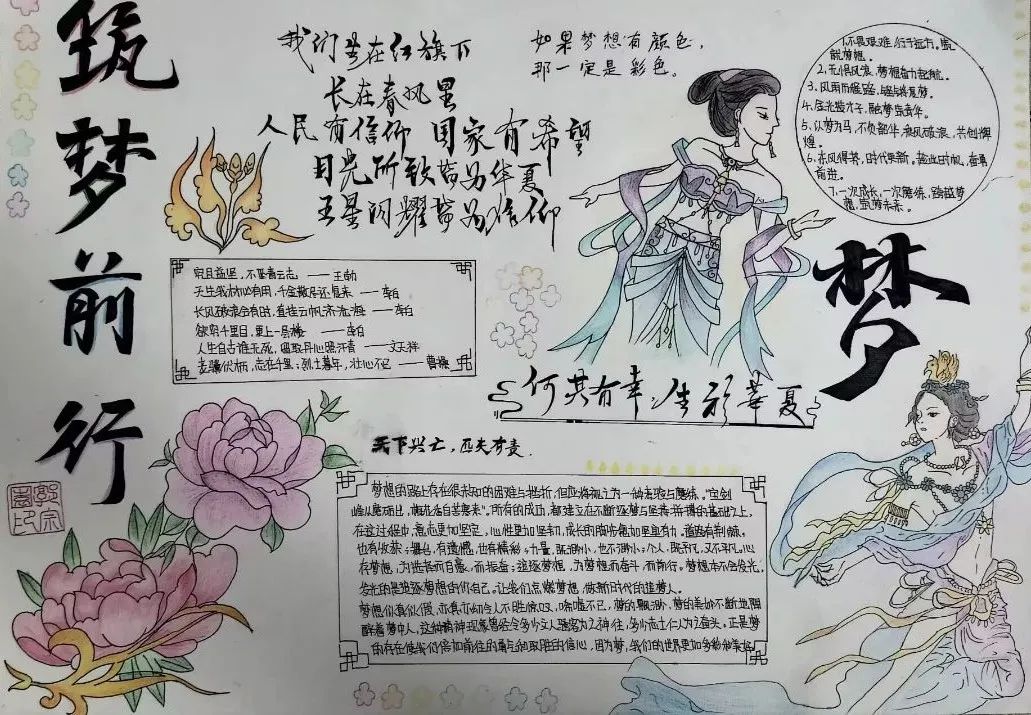 筑梦前行
我们坐在红旗下
长在春风里
人民有信仰 国家有希望
目光所致皆为华夏
五星闪耀皆为信仰
如果梦想有颜色,
那一定是彩色。
1、不畏艰难,行于远方,
梦想。
2、无惧风浪,梦想奋力起航。
3、风雨而
4、
5、以梦为马,不负韶华,乘风破浪,共创辉
煌。
6、时代更新,奋勇
前进。
7、一次成长,一次磨练,跨越梦
想,筑梦未来。
梦
穷且益坚,不坠青云志 ——王勃
天生我材必有用,千金散尽还复来 ——李白
长风破浪会有时,直挂云帆济沧海 ——李白
欲穷千里目,更上一层楼 ——李白
人生自古谁无死,留取丹心照汗青 ——文天祥
老骥伏枥,志在千里;烈士暮年,壮心不已 ——曹操
何其有幸,生于華夏
天下兴亡,匹夫有责.
梦想的路上存在很未知的困难与挫折,但应将视之为一种考验与磨练。"宝剑
峰从磨砺出,梅花香自苦寒来"。所有的成功,都建立在不断逐梦与坚持拼搏的基础之上,
在这过程中,意志更加坚定,心性更加坚韧,成长的脚步愈加坚韧有力。道路有荆棘,
也有收获;有遗憾,也有精彩;力量,既渺小,也不渺小;个人,既平凡,又不平凡。心
存梦想,为梦想而自
发光的是追逐梦想的你自己,让我们点燃梦想,做新时代的追梦人。
梦想似真似假,亦真亦幻令人不胜惊叹,唏嘘不已,梦的飘渺,梦的美妙不断地陶
醉着梦中人,这种精神现象曾经令多少文人骚客为之神往,多少志士仁人为之奋斗。正是梦
的存在使我们倍加前往的勇气和取胜的信心,因为梦,我们的世界更加多彩和美好